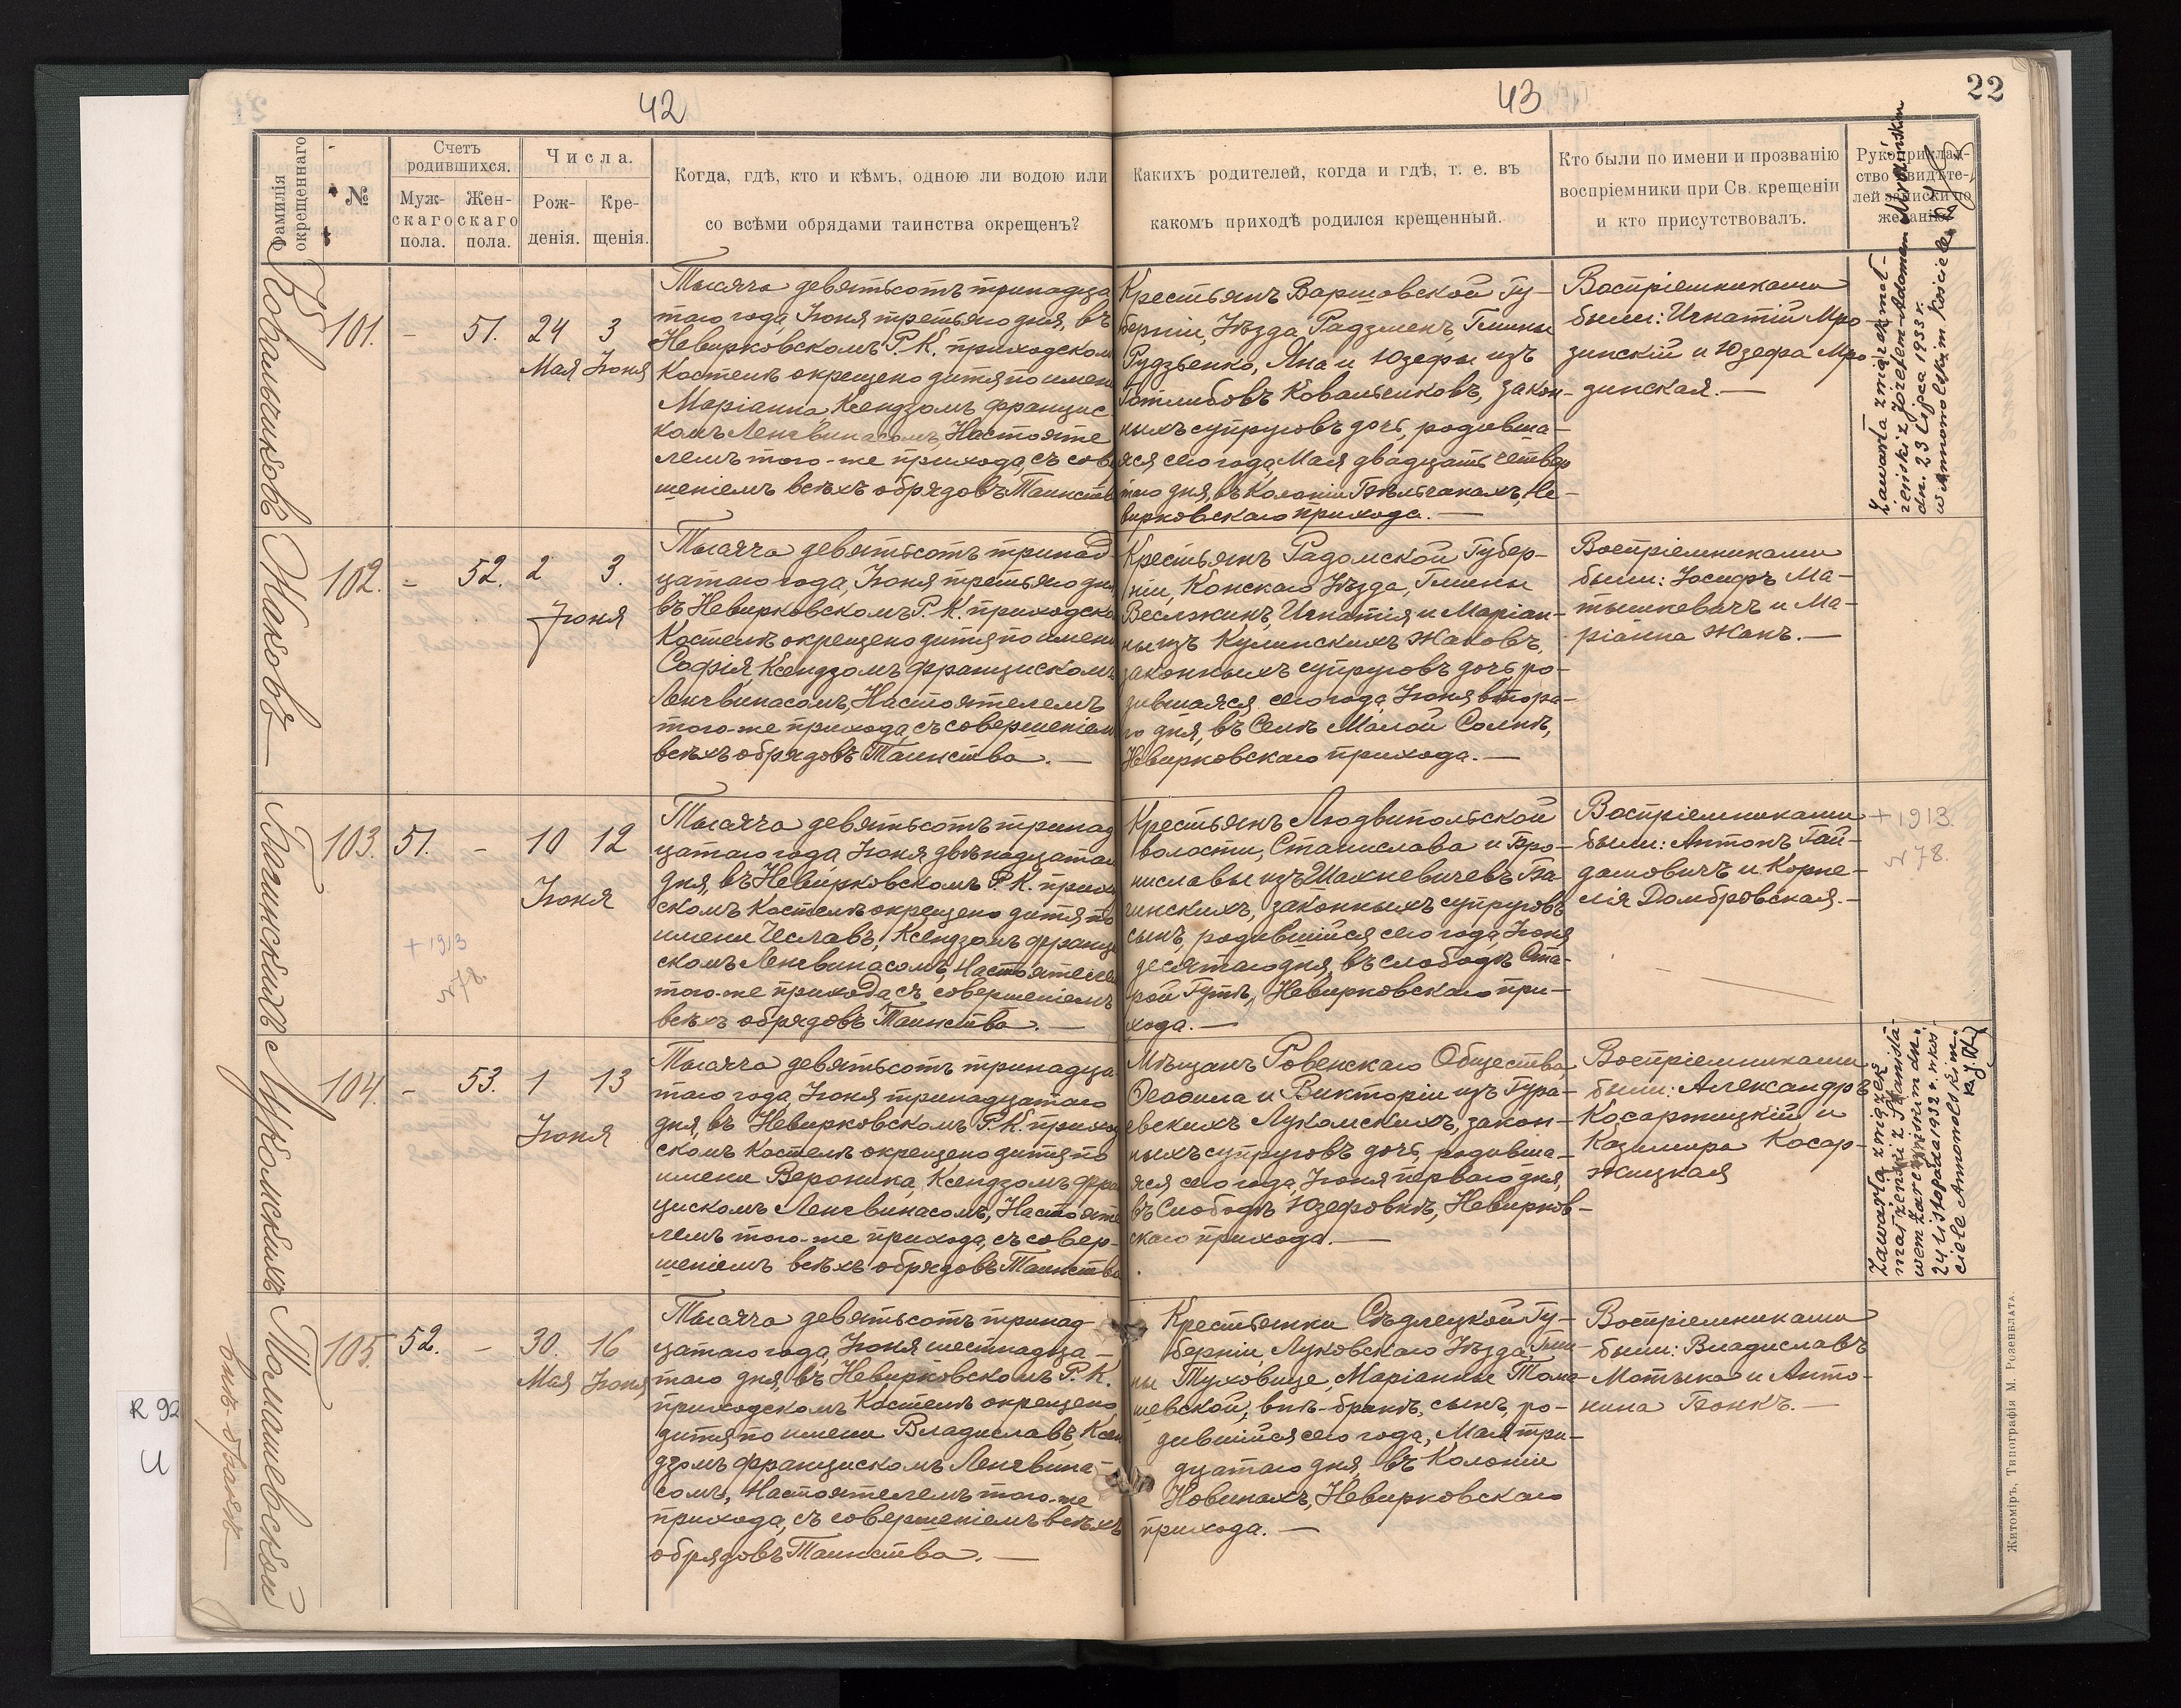 42
Фамилія окрещеннаго
№
Счетъ родившихся.
Мужскаго пола.
Женскаго пола.
Числа.
Рожденія.
Крещенія.
Когда, гдѣ, кто и кѣмъ, одною ли водою или
со всѣми обрядами таинства окрещенъ?
43
22
Какихъ родителей, когда и гдѣ, т. е. въ
какомъ приходѣ родился крещенный.
Кто были по имени и прозванію
воспріемники при Св. крещеніи
и кто присутствовалъ.
Рукоприклад-
ство свидѣте-
лей записки по
желанію
Ковальчиковъ
101.
-
51.
24
Мая
3
Іюня
Тысяча девятьсотъ тринадца
таго года, Іюня третьяго дня, въ
Невирковскомъ Р. К. приходском
Костелѣ окрещено дитя по имени
Маріанна, Ксендзомъ Францис-
комъ Ленгвинасомъ, Настояте
лемъ того-же прихода, съ совер
шеніемъ всѣхъ обрядовъ Таинств
Крестьянъ Варшавской Гу-
берніи, Уѣзда Радзмен, Гмины
Рудзѣенко, Яна и Юзефы изъ
Готлибовъ Ковальчиковъ, закон-
ныхъ супруговъ дочь, родивша-
яся сего года, Мая двадцать четвер
таго дня, въ Колоніи Бѣльчаках, Не-
вирковскаго прихода. —
Воспріемниками
были: Игнатій Мро-
зинскій и Юзефа Мро-
зинская. —
Zawarła związek mał-
żeński z Józefem-Adamem Mrozińskim
dn. 23 lipca 1933 r.
w Annowolskim Kościele
Жаковъ —
102.
-
52.
2
3.
Іюня
Тысяча девятьсотъ тринад-
цатаго года, Іюня третьяго дня
въ Невирковскомъ Р. К. приходско
Костелѣ окрещено дитя по имени
Софія, Ксендзомъ Францискомъ
Ленгвинасомъ, Настоятелемъ
того-же прихода, съ совершеніем
всѣхъ обрядовъ Таинства. —
Крестьянъ Радомской Губер-
ніи, Конскаго Уѣзда, Гмины
Веслжинъ, Игнатія и Маріан-
ны изъ Кулинскихъ Жаковъ,
законныхъ супруговъ дочь, ро-
дившаяся сего года, Іюня втора-
го дня, въ Селѣ Малой Солпѣ,
Невирковскаго прихода. —
Воспріемниками
были: Іосифъ Ма-
тышкевичъ и Ма-
ріанна Жакъ. —
Багинскихъ
103.
51.
-
10
12
Іюня
+ 1913
№ 78.
Тысяча девятьсотъ тринад
цатаго года, Іюня двѣнадцатаго
дня, въ Невирковскомъ Р. К. приход
скомъ Костелѣ окрещено дитя по
имени Чеславъ, Ксендзомъ Францис
скомъ Ленгвинасомъ, Настоятелем
того-же прихода, съ совершеніемъ
всѣхъ обрядовъ Таинства. —
Крестьянъ Людвипольской
волости, Станислава и Бро-
ниславы изъ Шахневичевъ Ба
гинскихъ, законныхъ супруговъ
сынъ, родившійся сего года, Іюня
десятаго дня, въ слободѣ Ста-
рой Гутѣ, Невирковскаго при-
хода. —
Воспріемниками
были: Антонъ Гай-
дамовичъ и Корне-
лія Домбровская. —
+ 1913.
№ 78.
Лукомскихъ
104.
-
53.
1
13
Іюня
Тысяча девятьсотъ тринадца
таго года, Іюня тринадцатаго
дня, въ Невирковскомъ Р. К. приход
скомъ Костелѣ окрещено дитя по
имени Вероника, Ксендзомъ Фран
цискомъ Ленгвинасомъ, Настояте
лемъ того-же прихода, съ совер-
шеніемъ всѣхъ обрядовъ Таинства
Мѣщанъ Ровенскаго Общества
Ѳеофила и Викторіи изъ Гура-
евскихъ Лукомскихъ, закон-
ныхъ супруговъ дочь, родивша-
яся сего года, Іюня перваго дня,
въ Слободѣ Юзефовкѣ, Невирков-
скаго прихода. —
Воспріемниками
были: Александръ
Косаржицкій и
Казимира Косар-
жицкая
Zawarła związek
małżeński z Stanisła-
wem Zarem
24 listopada 1932 r. w koś-
ciele Annowolskim.
Томашевской
внѣ-бракъ —
105.
52.
-
30.
Мая
16
Іюня
Тысяча девятьсотъ тринад-
цатаго года, Іюня шестнадца-
таго дня, въ Невирковскомъ Р. К.
приходскомъ Костелѣ окрещено
дитя по имени Владиславъ, Ксен
дзомъ Францискомъ Ленгвина-
сомъ, Настоятелемъ того-же
прихода, съ совершеніемъ всѣхъ
обрядовъ Таинства. —
Крестьянки Сѣдлецкой Гу-
берніи Луковскаго Уѣзда, Гми-
ны Туховице, Маріанны Тома-
шевской, внѣ-бракъ, сынъ, ро-
дившійся сего года, Мая три-
дцатаго дня, въ Колоніи
Новинахъ, Невирковскаго
прихода. —
Воспріемниками
были: Владиславъ
Мотыка и Анто-
нина Бонкъ. —
R 92
U
Житоміръ, Типографія М. Розенблата.